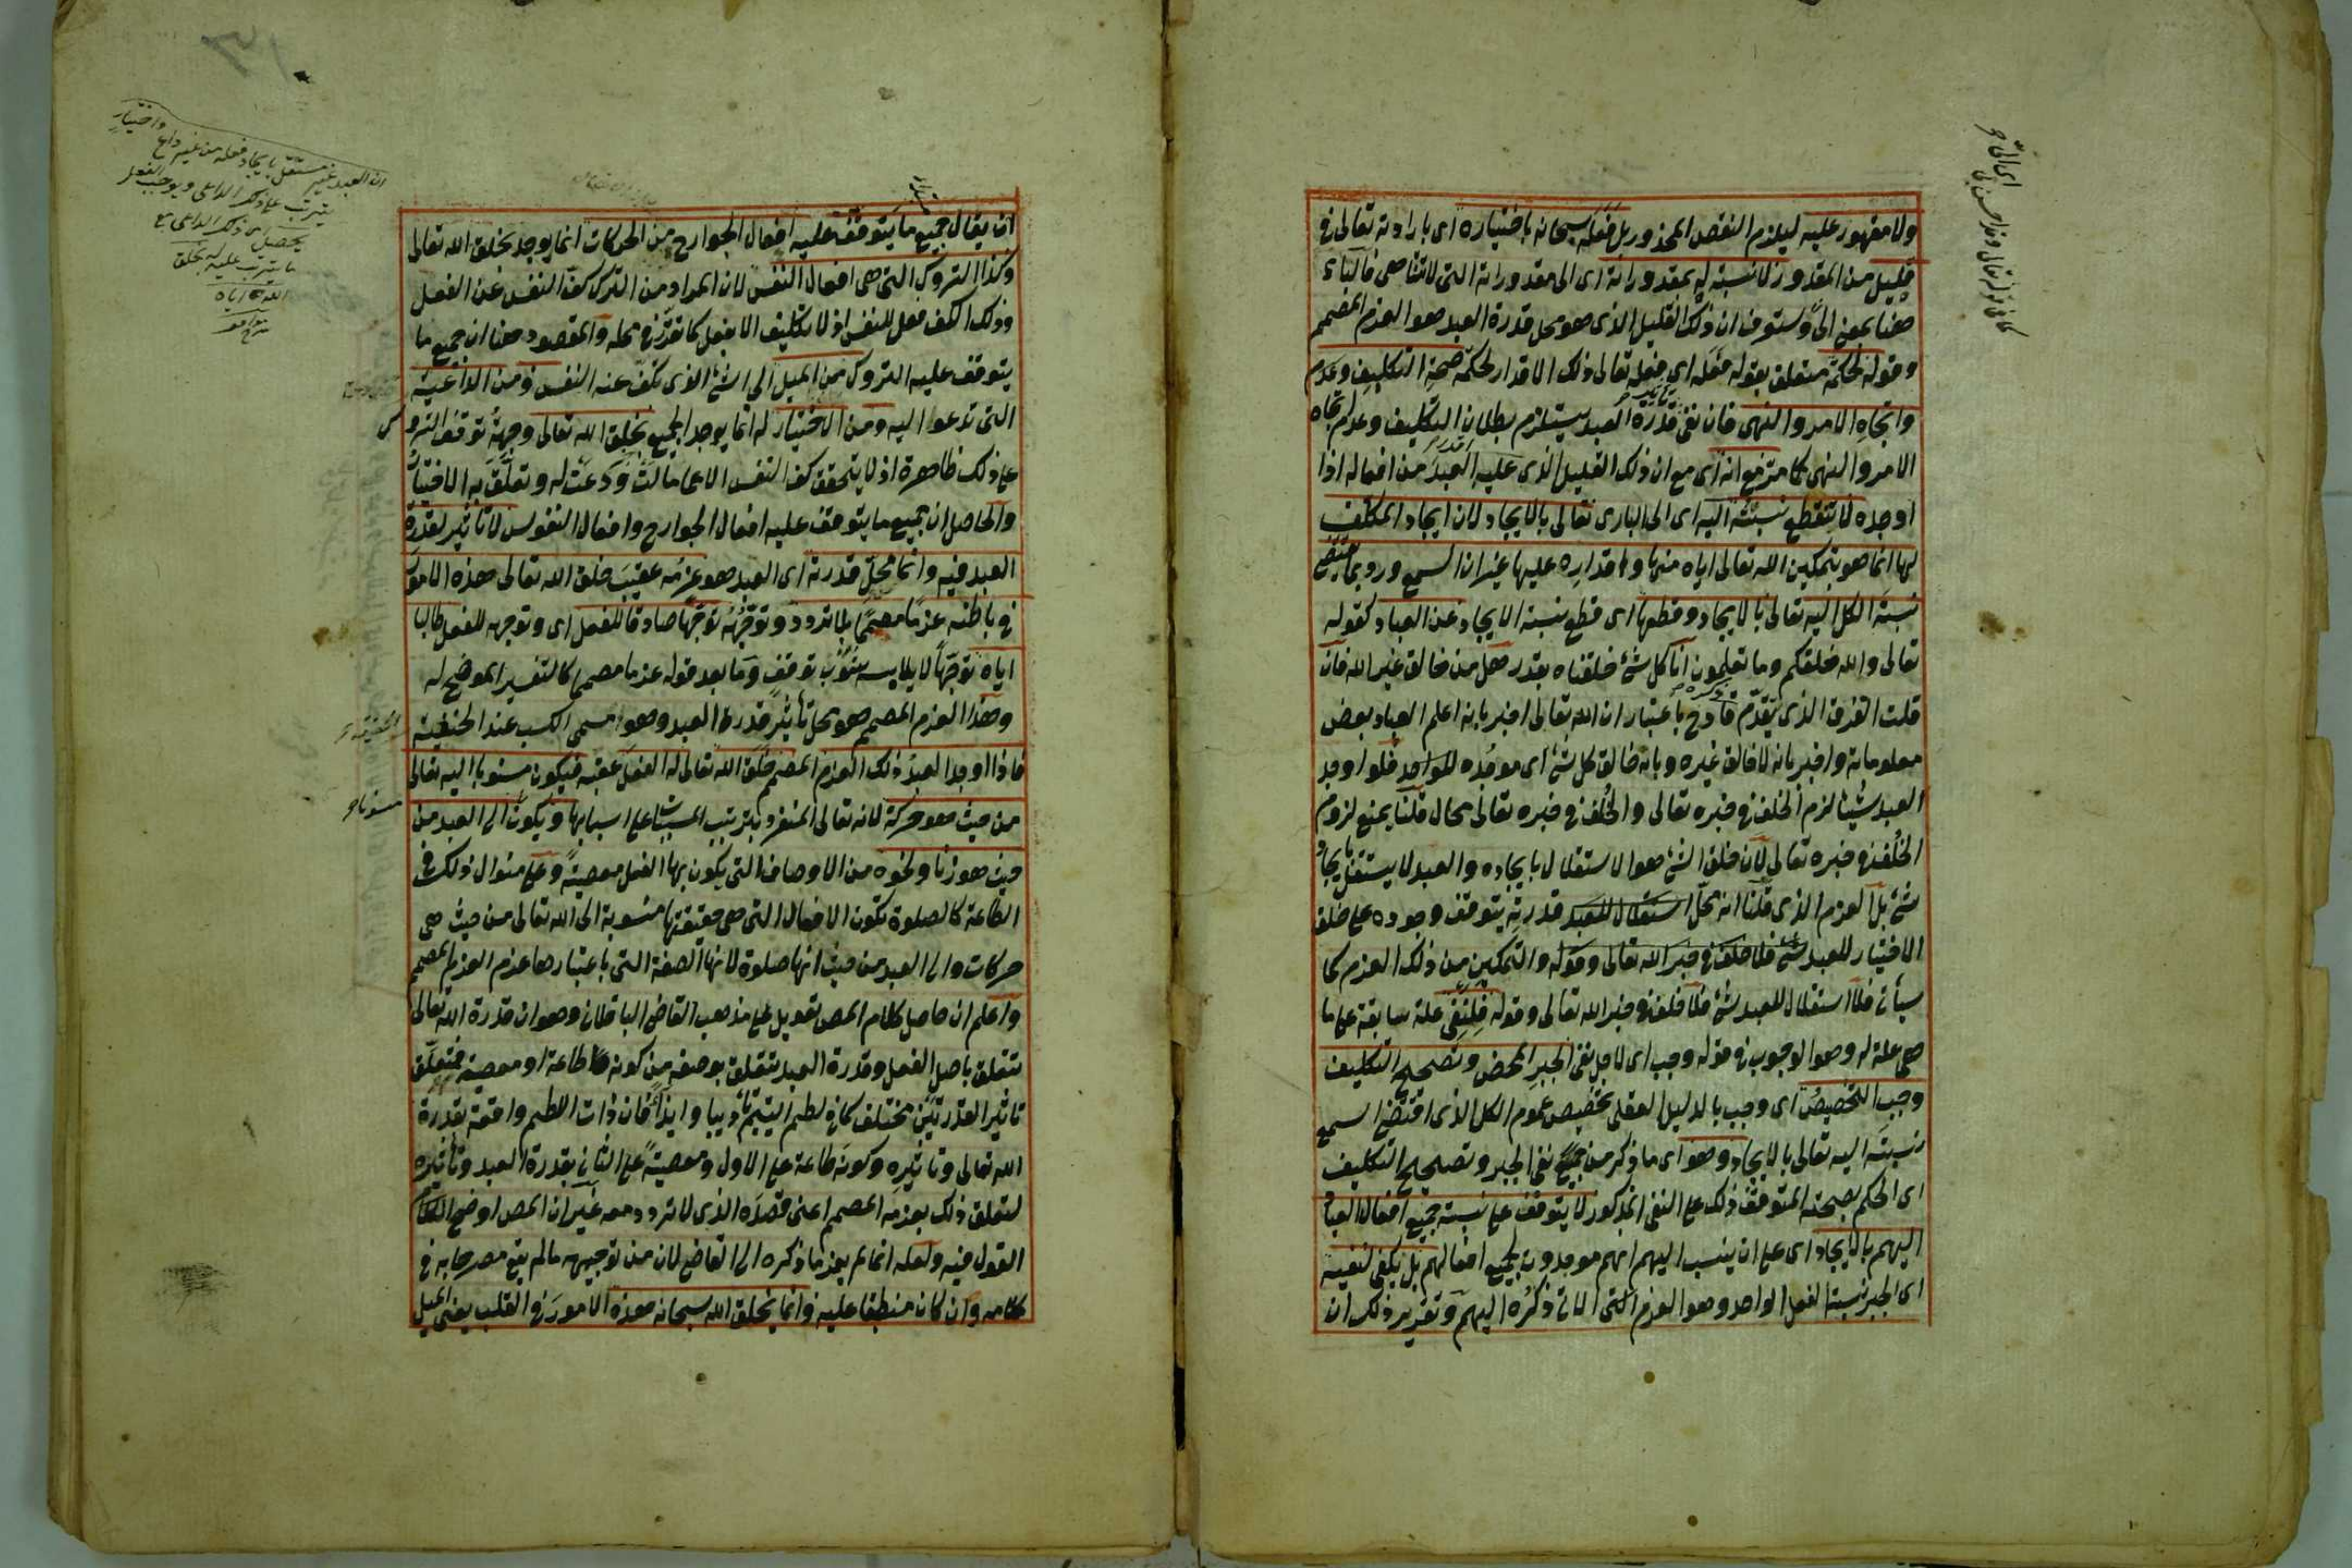 ولا مقهور عليه ليلزم النقص المحذور بل فعله سبحانه باختياره اى بارادته تعالى فى
قليل من المقدور لا نسبة له بمقدوراته اى الى مقدوراته التى لا تتناهى فالباء
هنا بمعنى الى وستعرف ان ذلك القليل الذى هو محل قدرة العبد هو العزم المصمم
وقوله لحكمة متعلق بقوله فعله اى فعله تعالى ذلك الاقدار لحكمة صحة التكليف وعدم
واتجاه الامر والنهى فان نفى قدرة العبد يستلزم بطلان التكليف وعدم اتجاه
الامر والنهى كما مر مع انه اى مع ان ذلك القليل الذى عليه العبد من افعاله اذا
اوجده لا تنقطع نسبته اليه اى الى البارى تعالى بالايجاد لان ايجاد المكلف
لها انما هو بتمكين الله تعالى اياه منها واقداره عليها غير ان السمع ورد بما يقتضى
نسبة الكل اليه تعالى بالايجاد وقطعها اى قطع نسبة الايجاد عن العباد كقوله
تعالى والله خلقكم وما تعلمون انا كل شئ خلقناه بقدر هل من خالق غير الله فان
قلت الفرق الذى تقدم قادح باعتبار ان الله تعالى اخبر بانه اعلم العباد بعض
معلوماته واخبر بانه لا خالق غيره وبانه خالق كل شئ اى موجده فلو اوجد
العبد شيئا لزم الخلف فى خبره تعالى والخلف فى خبره تعالى محال قلنا يمنع لزوم
الخلف فى خبره تعالى لان خلق الشئ هو الاستقلال بايجاده والعبد لا يستقل بايجاد
شئ بل العزم الذى قلنا انه محل استقلال للعبد قدرته يتوقف وجوده على خلق
الاختيار للعبد شئ فلا خلف فى خبر الله تعالى وقوله والتمكين من ذلك العزم كما
سيأتى فلا استقلال للعبد بشئ فلا خلف فى خبر الله تعالى وقوله فلنفى علة سابقة على ما
هى علة له وهو الوجوب فى قوله وجب اى لاجل نفى الجبر المحض وتصحيح التكليف
وجب التخصيص اى وجب بالدليل العقلى تخصيص عموم الكل الذى اقتضى السمع
نسبته اليه تعالى بالايجاد وهو اى ما ذكر من نفى الجبر وتصحيح التكليف
اى الحكم بصحته المتوقف ذلك على النفى المذكور لا يتوقف على نسبة جميع افعال العباد
اليهم بالايجاد اى على ان ينسب اليهم انهم موجدون لجميع افعالهم بل يكفى لنفيه
اى الجبر نسبة الفعل الواحد وهو العزم الاتى ذكره اليهم وتقرير ذلك ان
ان يقال جميع ما يتوقف عليه افعال الجوارح من الحركات انما يوجد بخلق الله تعالى
وكذا التروك التى هى افعال النفس لان المراد من الترك كف النفس عن الفعل
وذلك الكف فعل للنفس اذ لا تكليف الا بفعل كما تقرر فى محله والمقصود هنا ان جميع ما
يتوقف عليه التروك من الميل الى الشئ الذى تكف عنه النفس ومن الداعية
التى تدعوا اليه ومن الاختيار له انما يوجد الجميع بخلق الله تعالى وجهة توقف التروك
على ذلك ظاهرة اذ لا يتحقق كف النفس الا عما مالت ودعت له وتعلق به الاختيار
والحاصل ان جميع ما يتوقف عليه افعال الجوارح وافعال النفوس لا تاثير لقدرة
العبد فيه وانما محل قدرته اى العبد هو عزمه عقيب خلق الله تعالى هذه الامور
فى باطنه عزما مصمما بلا تردد وتوجهه توجها صادقا للفعل اى وتوجهه للفعل طالبا
اياه توجها لا يلابسه شوب توقف وما بعد قوله عزما مصمما كالتفسير الموضح له
وهذا العزم المصمم هو محل تأثير قدرة العبد وهو مسمى الكسب عند الحنفية
فاذا اوجد العبد ذلك العزم المصمم خلق الله تعالى له الفعل عقبه فيكون منسوبا اليه تعالى
من حيث هو حركة لانه تعالى المنفرد بترتيب المسببات على اسبابها ويكون الى العبد من
حيث هو زنا ونحوه من الاوصاف التى يكون بها الفعل معصية وعلى منوال ذلك فى
الطاعة كالصلوة تكون الافعال التى هى حقيقتها منسوبة الى الله تعالى من حيث هى
حركات والى العبد من حيث انها صلوة لانها الصفة التى باعتبارها عزم العزم المصمم
واعلم ان حاصل كلام المص تعويل على مذهب القاضى الباقلانى وهو ان قدرة الله تعالى
تتعلق باصل الفعل وقدرة العبد تتعلق بوصفه من كونه طاعة او معصية فمتعلق
تاثير القدرتين مختلف كما فى لطم اليتيم تأديبا وايذاء فان ذات اللطم واقعة بقدرة
الله تعالى وتاثيره وكونه طاعة على الاول ومعصية على الثانى بقدرة العبد وتأثيره
لتعلق ذلك بعزمه المصمم اعنى قصده الذى لا تردد معه غير ان المص اوضح الكلام
القول فيه ولعله انما لم يعز ما ذكره الى القاضى لان من توجيهه ما لم يقع مصرحا به فى
كلامه وان كان منطبقا عليه وانما يخلق الله سبحانه هذه الامور فى القلب يعنى الميل
ان العبد غير مستقل بايجاد فعله من غير داع واختيار
يترتب على ذلك الداعى ويوجب الفعل